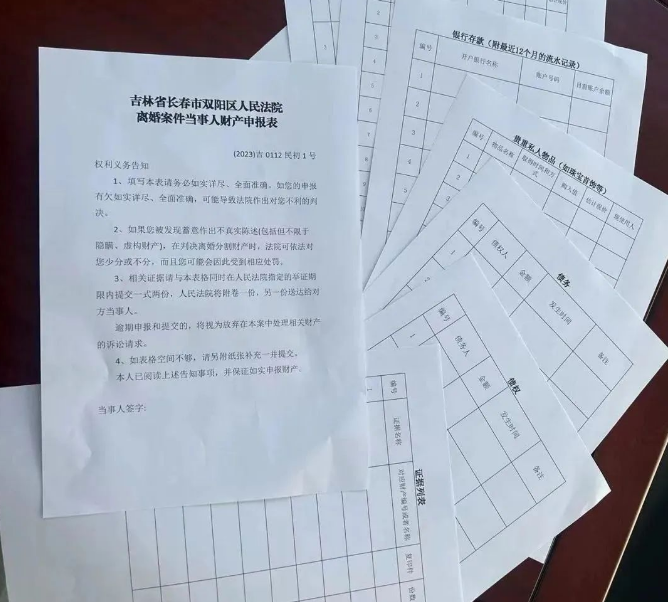 吉林省长春市双阳区人民法院
离婚案件当事人财产申报表
(2023)吉 0112 民初 1 号
权利义务告知
1、填写本表请务必如实详尽、全面准确。如您的申报
有欠如实详尽、全面准确，可能导致法院作出对您不利的判
决。
2、如果您被发现蓄意作出不真实陈述(包括但不限于
隐瞒、虚构财产)，在判决离婚分割财产时，法院可依法对
您少分或不分，而且您可能会因此受到相应处罚。
3、相关证据请与本表格同时在人民法院指定的举证期
限内提交一式两份，人民法院将附卷一份，另一份送达给对
方当事人。
逾期申报和提交的，将视为放弃在本案中处理相关财产
的诉讼请求。
4、如表格空间不够，请另附纸张补充一并提交。
本人已阅读上述告知事项，并保证如实申报财产。
当事人签字：
银行存款（附最近12个月的流水记录）
编号 开户银行名称 账户号码 目前账户余额
1
2
3
贵重私人物品（如珠宝首饰等）
编号 物品名称 取得时间和方式 购入价 估计现价 现使用人
1
2
债务
编号 债权人 金额 发生时间 备注
1
2
债权
编号 债务人 金额 发生时间 备注
1
证据列表
编号 证据名称 对应财产编号或者名称 复印件 份数
1